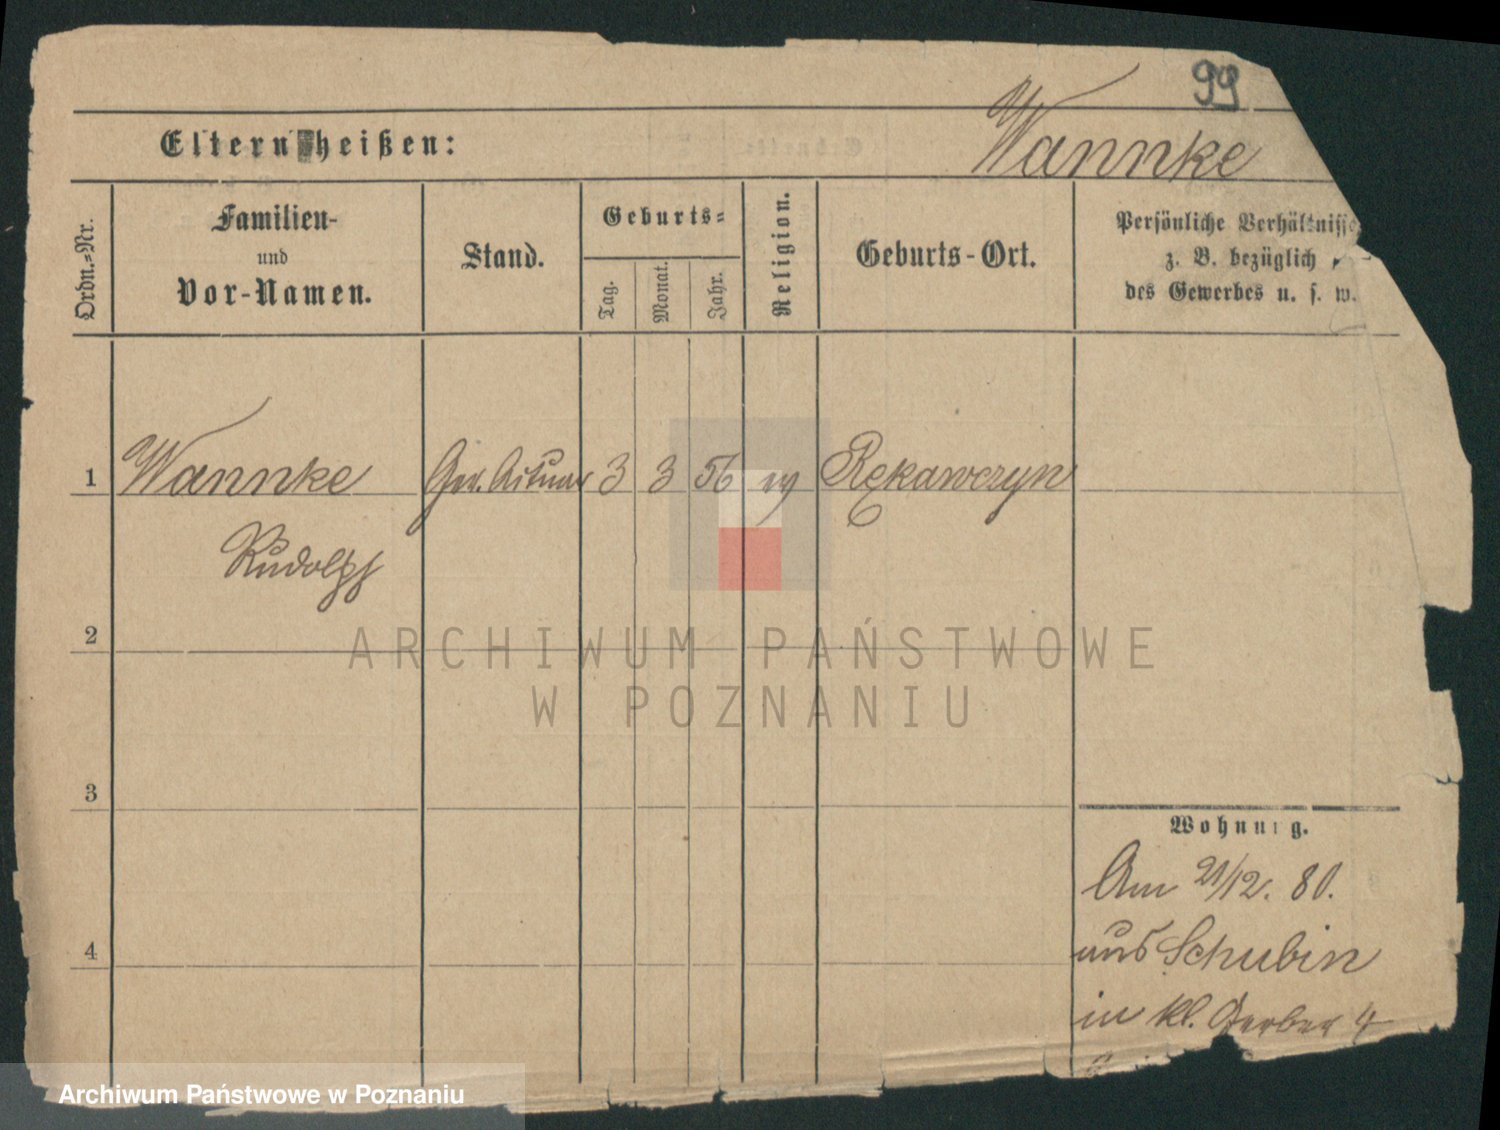 99
Wannke
Eltern heißen:
Ordn.-Nr.
Familien-
und
Vor-Namen.
Stand.
Geburts-
Tag.
Monat.
Jahr.
Religion.
Geburts-Ort.
Persönliche Verhältnisse
z. B. bezüglich
des Gewerbes u. s. w.
1 Wannke Ger. Actuar 3 3 56 Rękawczyn
Rudolph
2
3
4
Wohnung.
Am 21/12. 80.
aus Schubin
in kl. Gerber 4
ARCHIWUM PAŃSTWOWE
W POZNANIU
Archiwum Państwowe w Poznaniu